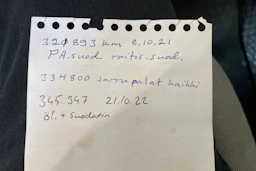 320 893 km 8.10.21
P.A.suod raitis.suod.
334800 Jarrupalat kaikki
345 347 21.10.22
öl. + Suodatin